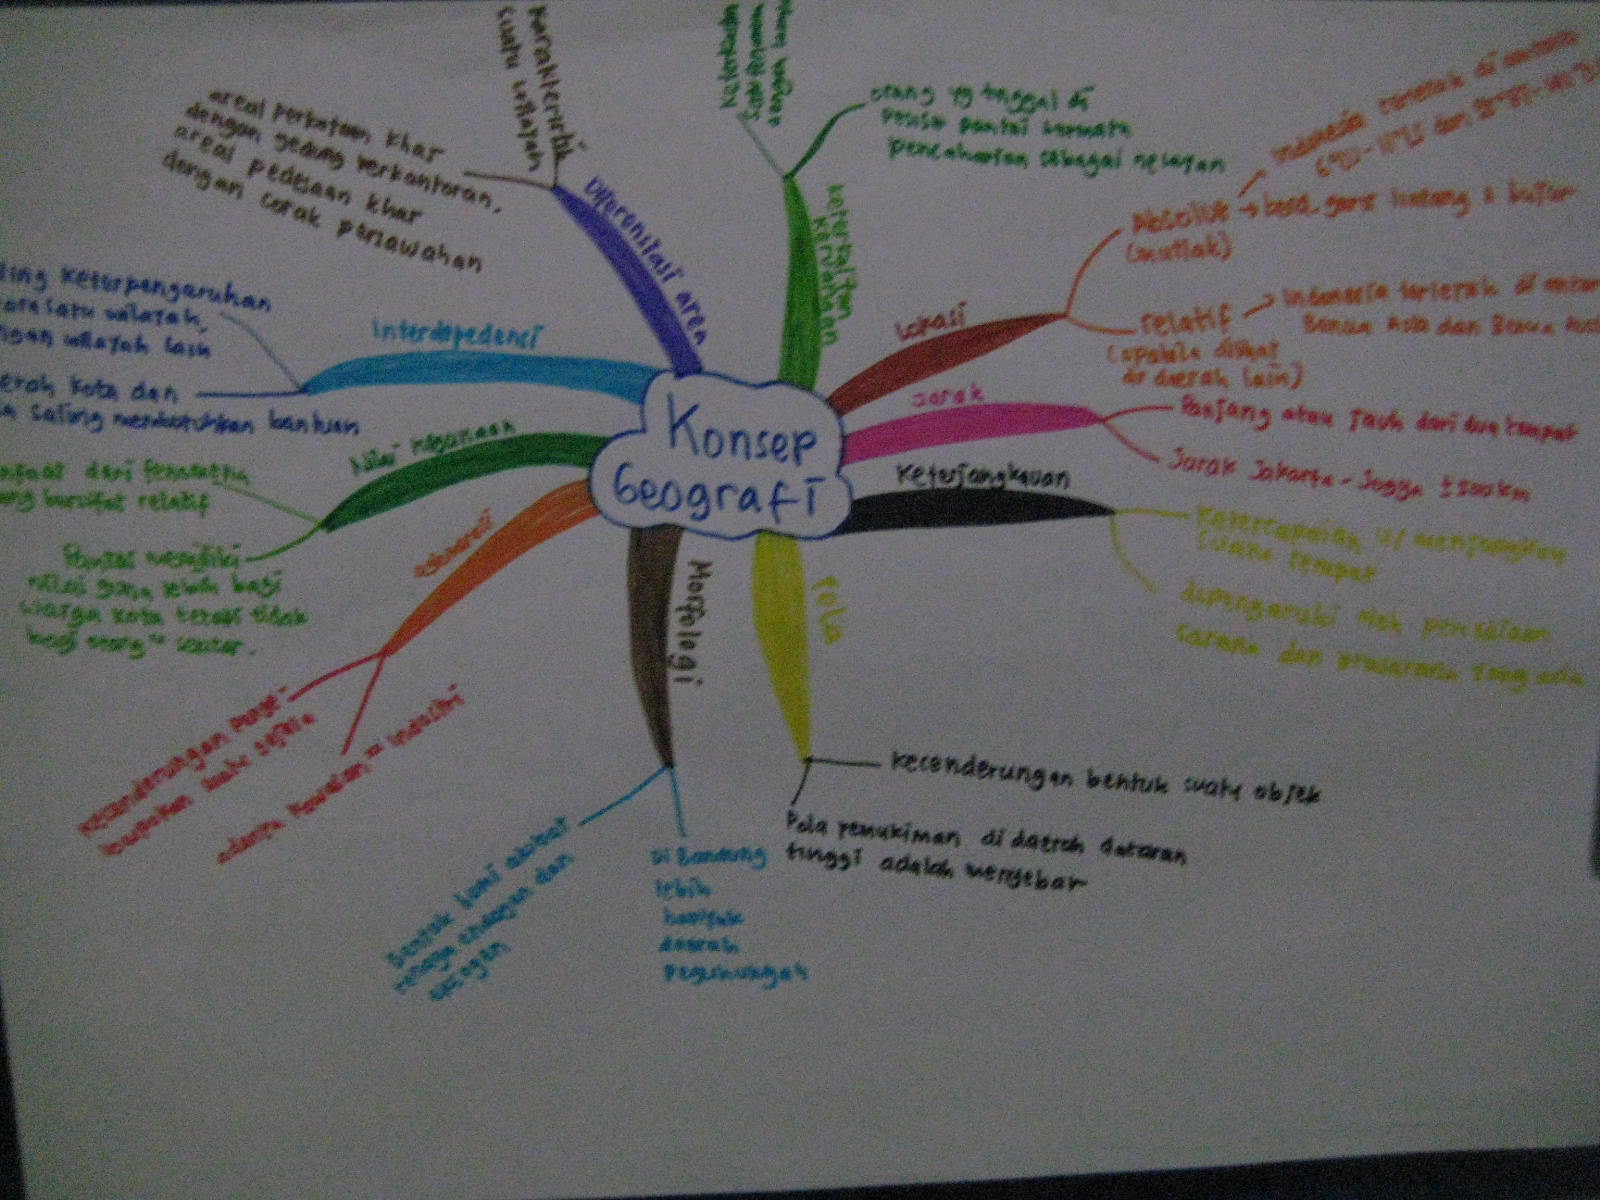 Konsep
Geografi
Lokasi
Absolut → berd. garis lintang & bujur
(mutlak)
Indonesia terletak di antara
relatif → Indonesia terletak di antara
Benua Asia dan Benua
(apabila dilihat
dr daerah lain)
Jarak
Panjang atau jauh dari dua tempat
Jarak Jakarta - Jogja ±
Keterjangkauan
Ketercapaian u/ menjangkau
suatu tempat
dipengaruhi oleh
sarana dan prasarana yang ada
Pola
kecenderungan bentuk suatu objek
Pola pemukiman di daerah dataran
tinggi adalah menyebar
Morfologi
Di Bandung
lebih
banyak
daerah
pegunungan
Bentuk bumi akibat
tenaga endogen dan
eksogen
aglomerasi
kecenderungan
adanya kawasan" industri
Nilai kegunaan
dari fenomena
yang bersifat relatif
Pantai memiliki
nilai guna lebih bagi
warga kota tetapi tidak
bagi orang" sekitar.
Interdependensi
keterpengaruhan
satu wilayah
dengan wilayah lain
kota dan
saling membutuhkan bantuan
Diferensiasi area
Karakteristik
suatu wilayah
areal perkotaan khas
dengan gedung perkantoran,
areal pedesaan khas
dengan corak persawahan
Keterkaitan
Keruangan
Keterkaitan
satu fenomena
dengan
orang yg tinggal di
pesisir pantai bermata
pencaharian sebagai nelayan